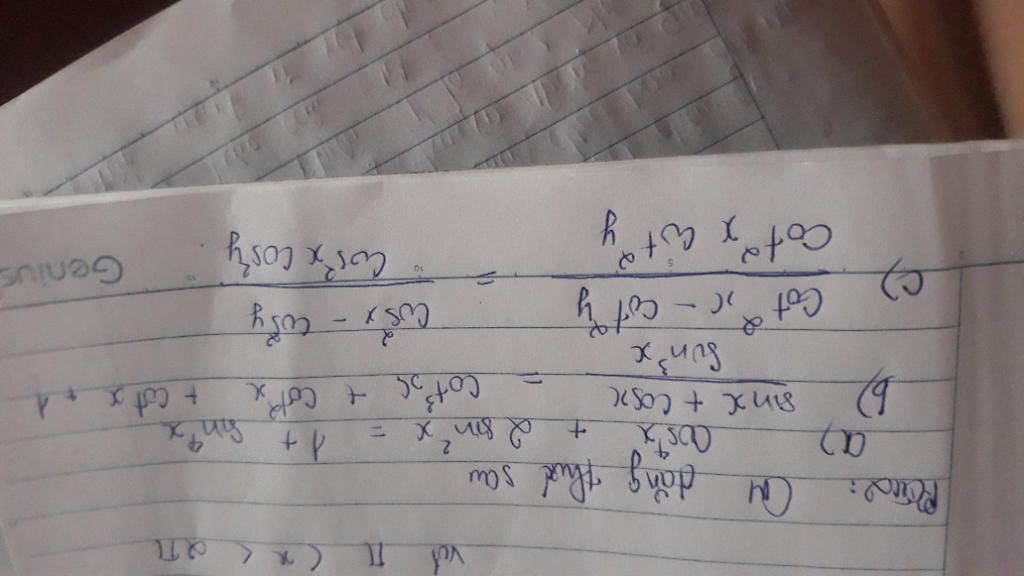 với π < x < 2π
CM đẳng thức sau
a) cos⁴x + 2 sin²x = 1 + sin⁴x
b) (sin x + cos x) / sin³x = cot³x + cot²x + cot x + 1
c) (cot²x - cot²y) / (cot²x cot²y) = (cos²x - cos²y) / (cos²x cos²y)
Genius